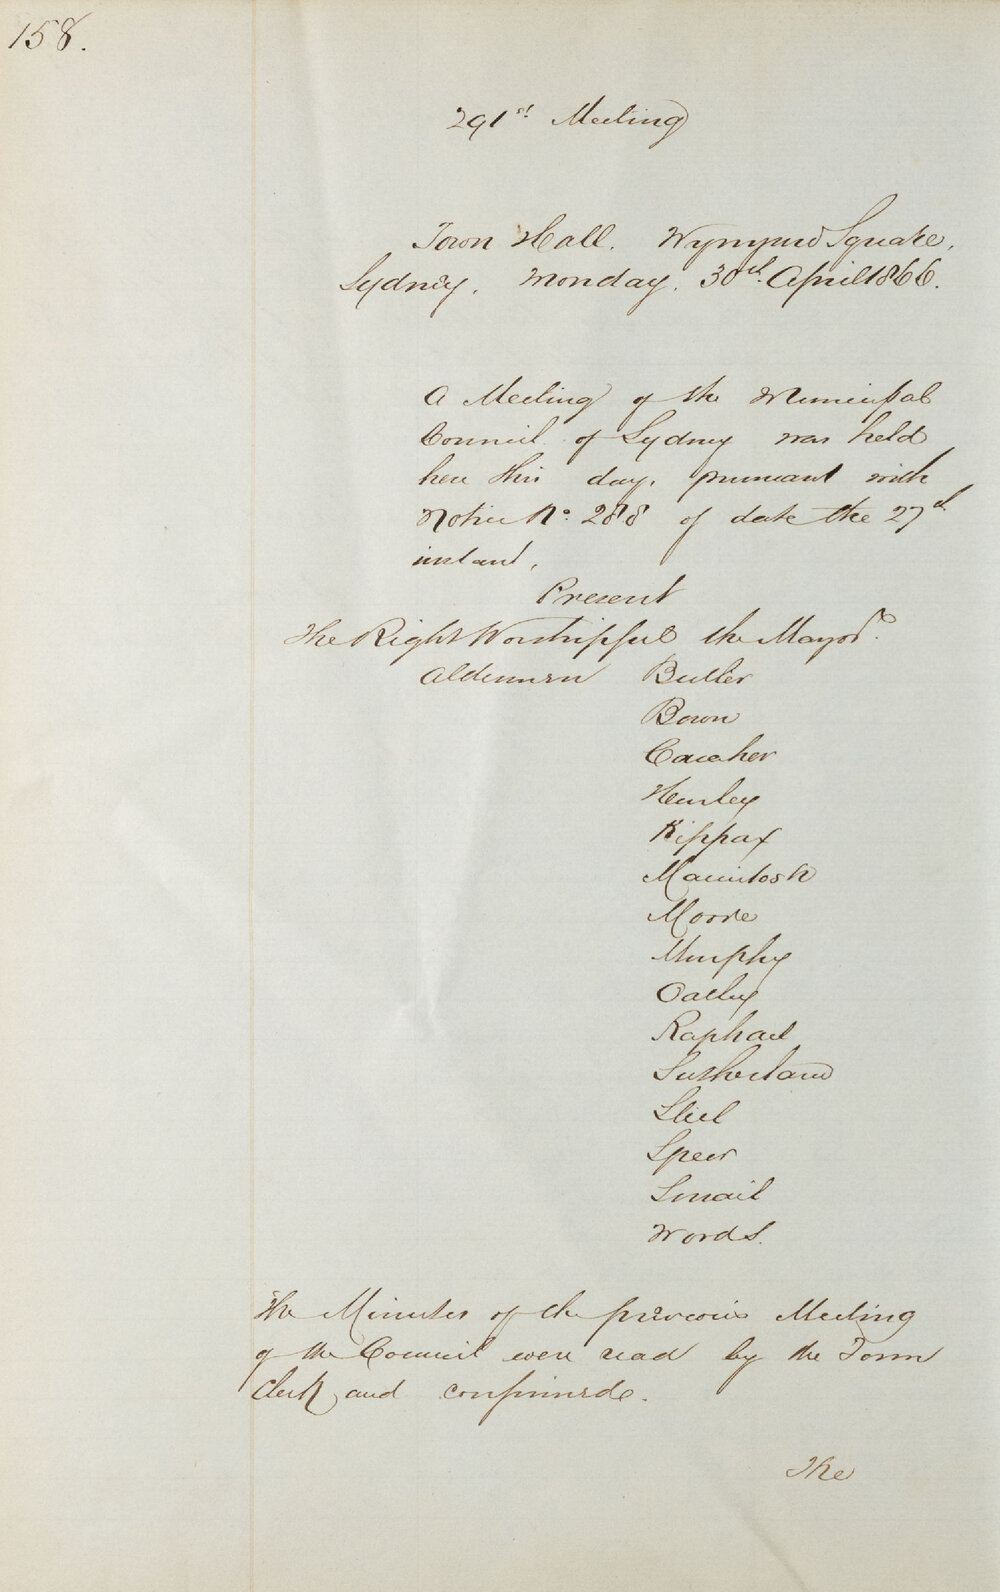 158.
291st Meeting
Town Hall. Wynyard Square,
Sydney. Monday. 30th. April 1866.
A Meeting of the Municipal
Council of Sydney was held
here this day, pursuant with
Notice No. 288 of date the 27th
instant.
Present
The Right Worshipful the Mayor.
Aldermen Butler
Bown
Caraher
Hurley
Kippax
Macintosh
Moore
Murphy
Oatley
Raphael
Sutherland
Steel
Speer
Smail
Woods.
The Minutes of the previous Meeting
of the Council were read by the Town
Clerk and confirmed.
The